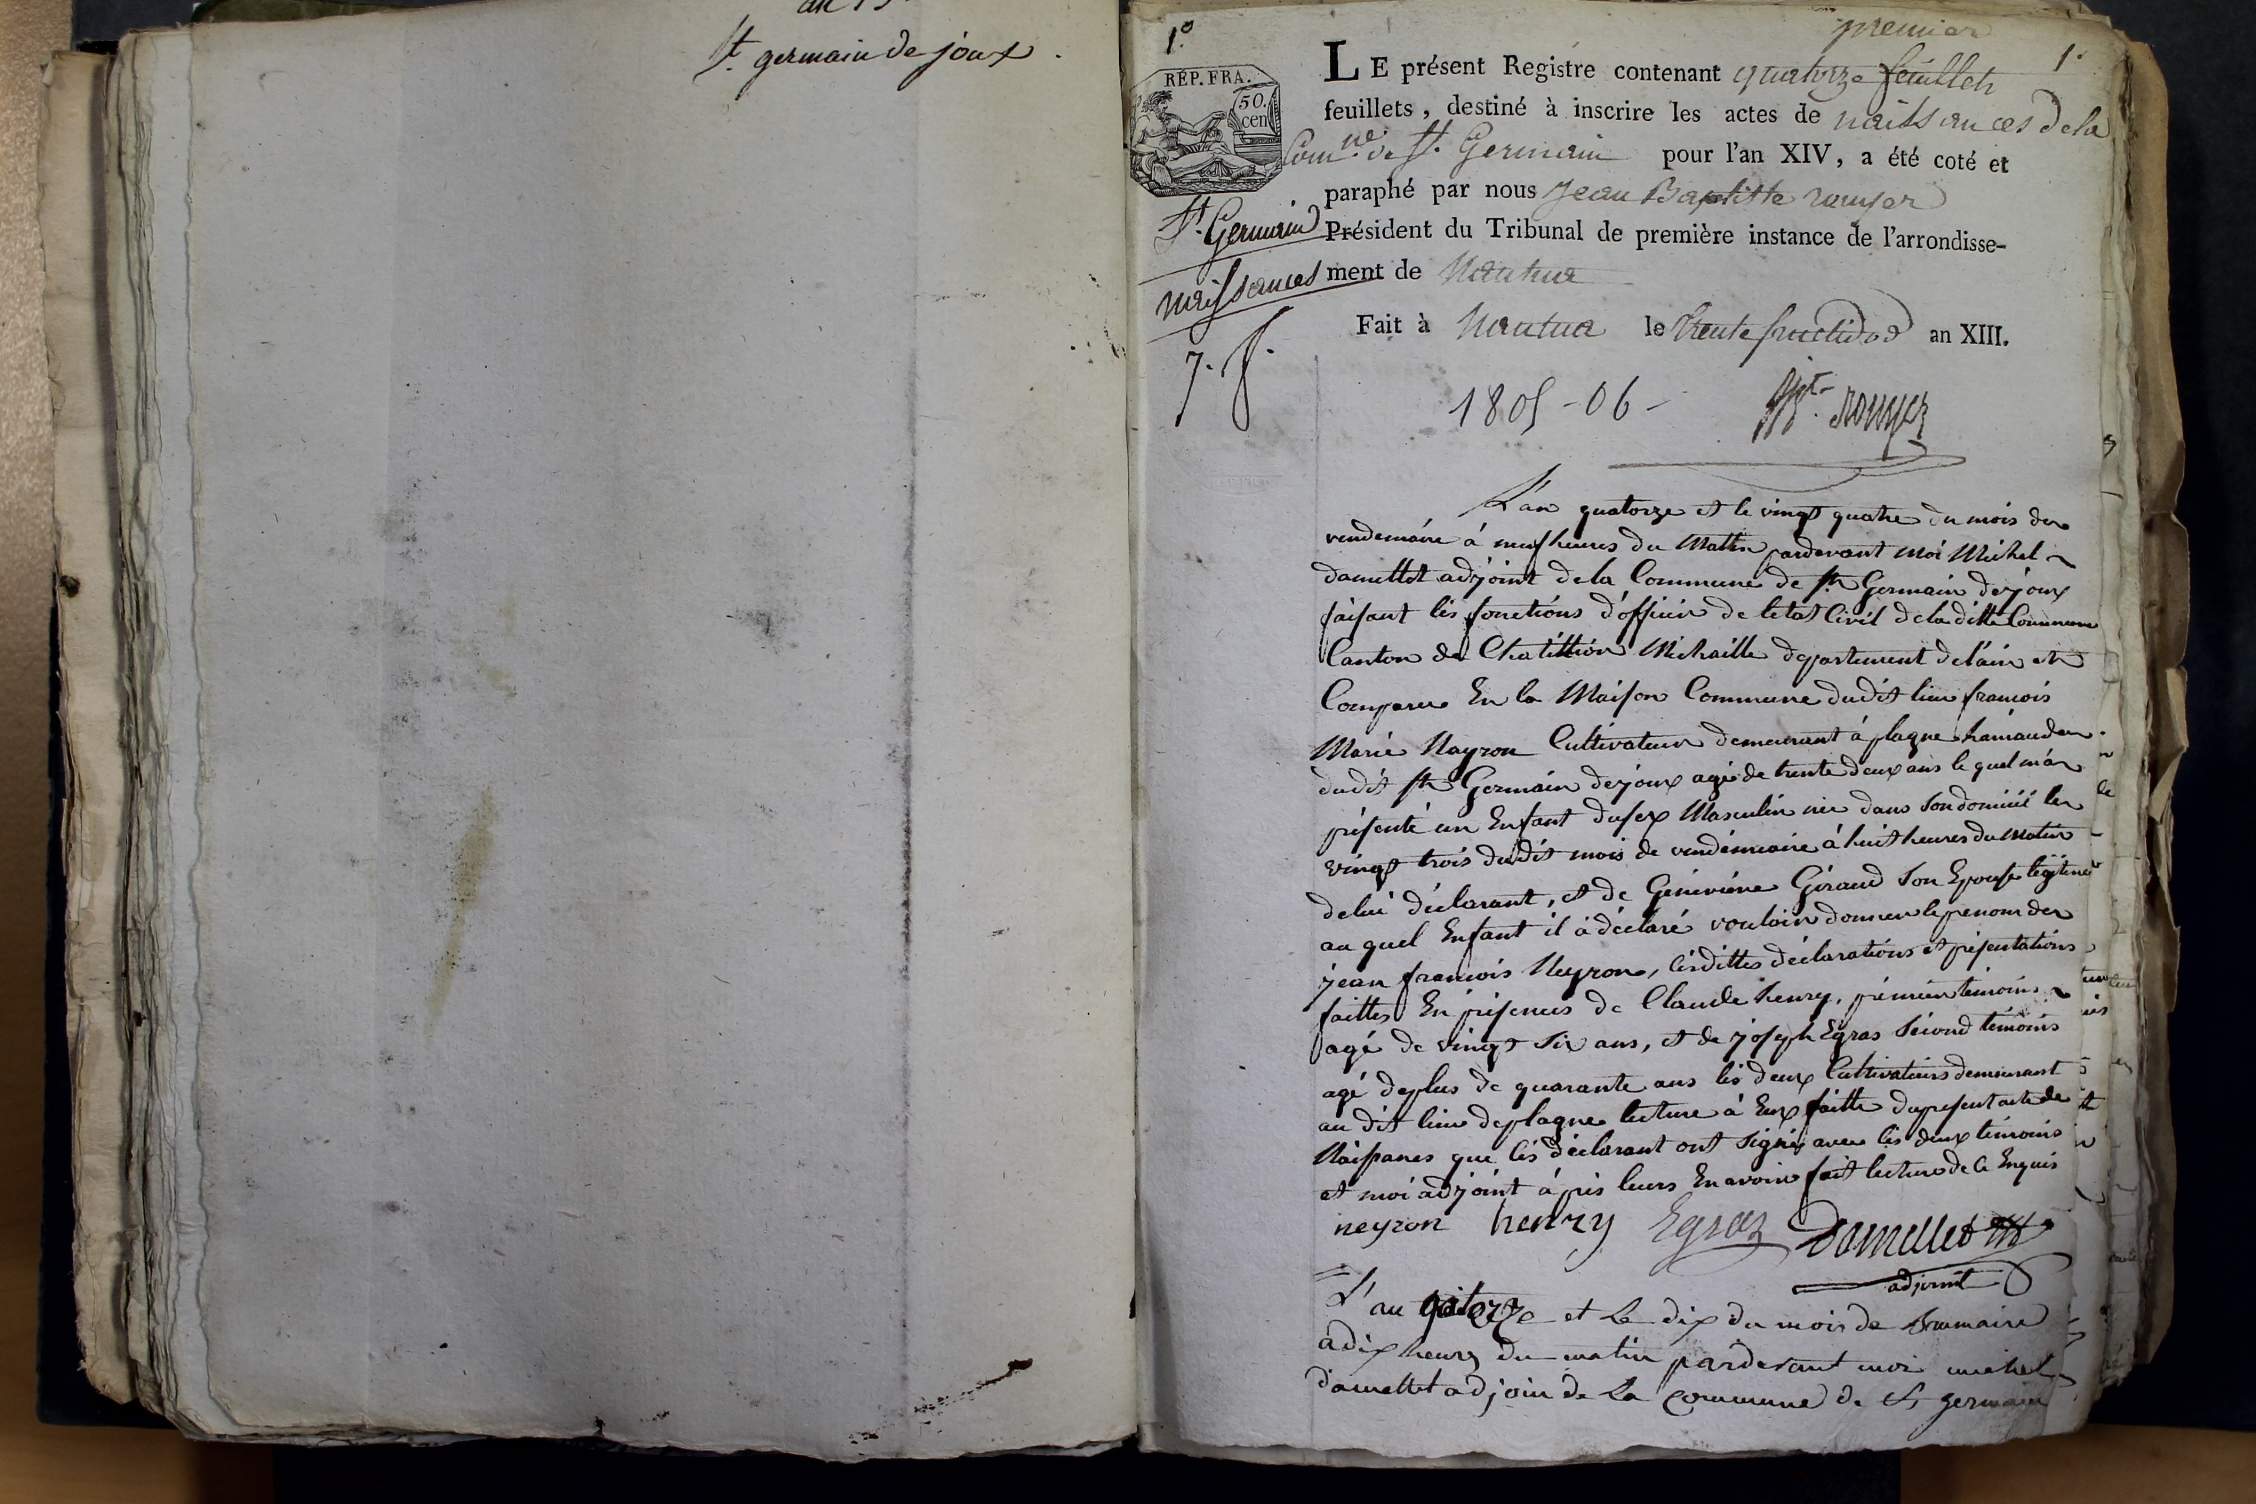 an 13
St. germain de joux.
1.º
premier
1.
RÉP. FRA.
50.
cen
LE présent Registre contenant quatorze feuillets
feuillets, destiné à inscrire les actes de naissances de la
Comne. de St. Germain pour l'an XIV, a été coté et
paraphé par nous Jean Baptiste rouyer
Président du Tribunal de première instance de l'arrondisse-
ment de Nantua
St. Germain
naissances
7. f.
Fait à Nantua le trente fructidor an XIII.
1805-06-
rouyer
L'an quatorze et le vingt quatre du mois de
vendemaire à neuf heures du Matin pardevant moi Michel
damellet adjoint de la Commune de St Germain de joux
faisant les fonctions d'officier de letat Civil de la ditte Commune
Canton de Chatillion Michaille departement de l'ain et
Comparu En la Maison Commune dudit lieu francois
Marie Nayron Cultivateur demeurant à plagne hamaude
dudit St Germain de joux agé de trente deux ans le quel m'a
présenté un Enfant du sex Masculin née dans son domicié le
vingt trois dudit mois de vendémiaire à huit heures du matin
de lui déclarant, et de Géneviéve Géraud son Epouse légitime
au quel Enfant il a déclaré vouloir donner le prenom de
jean francois Neyron, lesdittes déclarations et présentations
faittes En présences de Claude henry, premier temoin
agé de vingt six ans, et de joseph Egras sécond témoins
agé de plus de quarante ans les deux Cultivateurs demeurant
au dit lieu de plagne lecture à Eux faitte du present acte de
Naissances que les déclarant ont signé avec les deux témoins
et moi adjoint à pris leurs En avoir fait lecture de ce Enquis
neyron henry Egraz Damellet
adjoint
L'an quatorze et Le dix du mois de Brumaire
à dix heures du matin pardevant moi michel
damellet adjoin de La commune de St germain